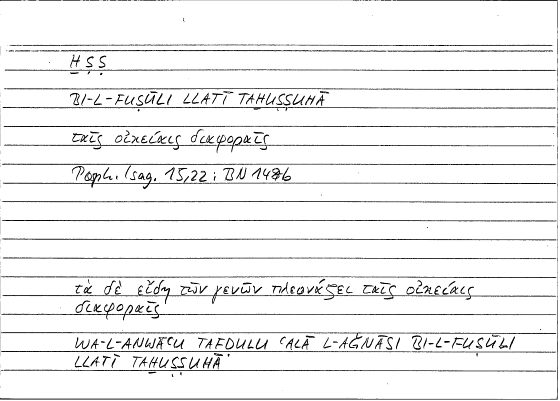 ḪṢṢ
BI-L-FUṢŪLI LLATĪ TAḪUṢṢUHĀ
ταῖς οἰκείαις διαφοραῖς
Porph. Isag. 15,22; BN 147b
τὰ δὲ εἴδη τῶν γενῶν πλεονάζει ταῖς οἰκείαις
διαφοραῖς
WA-L-ANWĀʿU TAFḌULU ʿALĀ L-AǦNĀSI BI-L-FUṢŪLI
LLATĪ TAḪUṢṢUHĀ